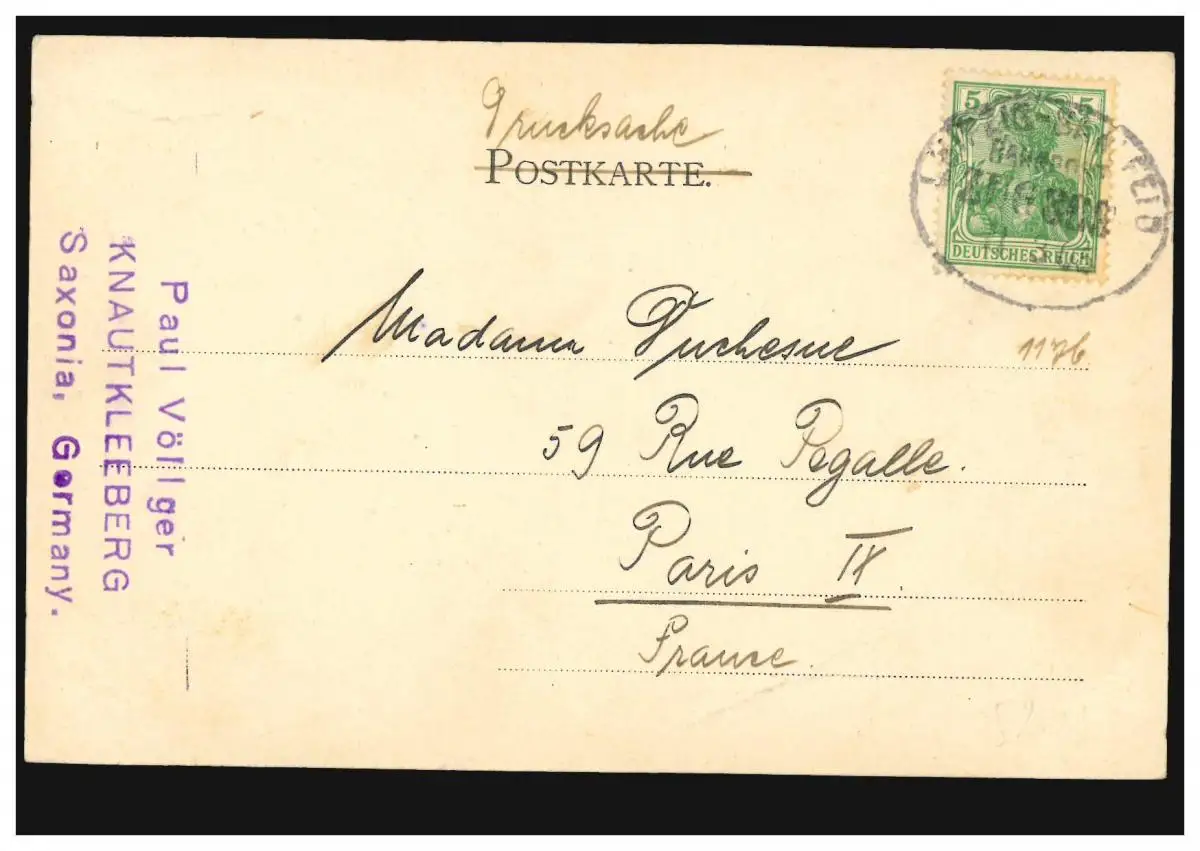 Drucksache
POSTKARTE.
5 5
DEUTSCHES REICH
Madame Duchesne
1176
59 Rue Pegalle.
Paris IX.
France.
Paul Völlger
KNAUTKLEEBERG
Saxonia, Germany.